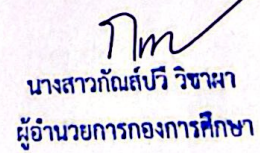 นางสาวกัณส์ปวี วิชาผา
ผู้อำนวยการกองการศึกษา